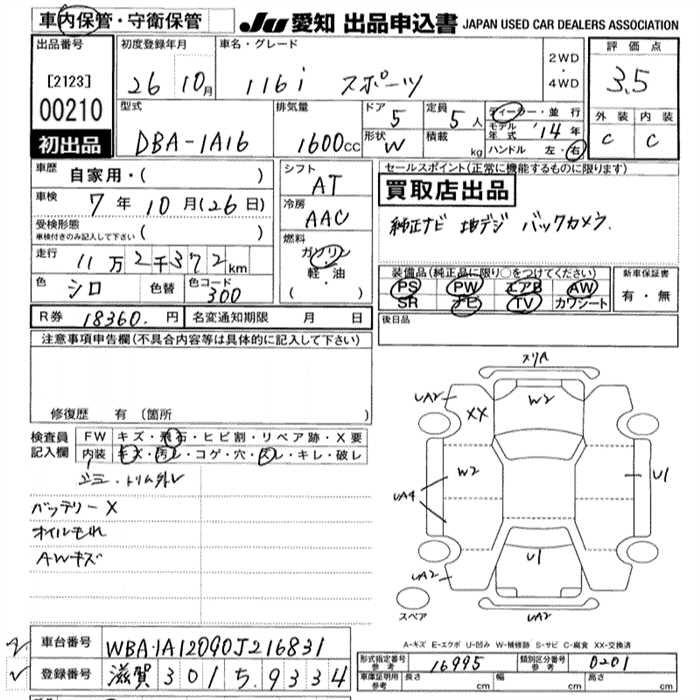 車内保管・守衛保管
JU 愛知 出品申込書 JAPAN USED CAR DEALERS ASSOCIATION
出品番号
[2123]
00210
初出品
初度登録年月
26 10月
車名・グレード
116i スポーツ
2WD
・
4WD
評価点
3.5
外装 内装
C C
型式
DBA-1A16
排気量
1600cc
ドア 5
形状 W
定員 5人
積載 kg
ディーラー・並行
モデル年式 '14年
ハンドル 左・右
車歴
自家用・( )
車検
7年10月(26日)
受検形態
車検付きのみ記入して下さい ( )
走行
11万2千372km
色 シロ 色替 色コード 300
シフト
AT
冷房
AAC
燃料
ガソリン
軽・油
( )
セールスポイント(正常に機能するものに限る)
買取店出品
純正ナビ 地デジ バックカメラ.
装備品(純正品に限り○をつけてください)
PS PW エアB AW
SR ナビ TV カワシート
新車保証書
有・無
R券 18360.円 名変通知期限 月 日
後日品
注意事項申告欄(不具合内容等は具体的に記入して下さい)
修復歴 有 (箇所 )
検査員記入欄
FW キズ・飛石・ヒビ割・リペア跡・X要
内装 キズ・汚レ・コゲ・穴・スレ・キレ・破レ
・トリム外レ
バッテリーX
オイルもれ
AWキズ
スリA
UA2
XX
W2
W2
U1
UA4
U1
UA2
UA2
スペア
A-キズ E-エクボ U-凹み W-補修跡 S-サビ C-腐食 XX-交換済
車台番号 WBA1A12090J216831
登録番号 滋賀 301 5 9334
形式指定番号 参考 16995 類別区分番号 参考 0201
車庫証明用 参考 長さ cm 幅 cm 高さ cm